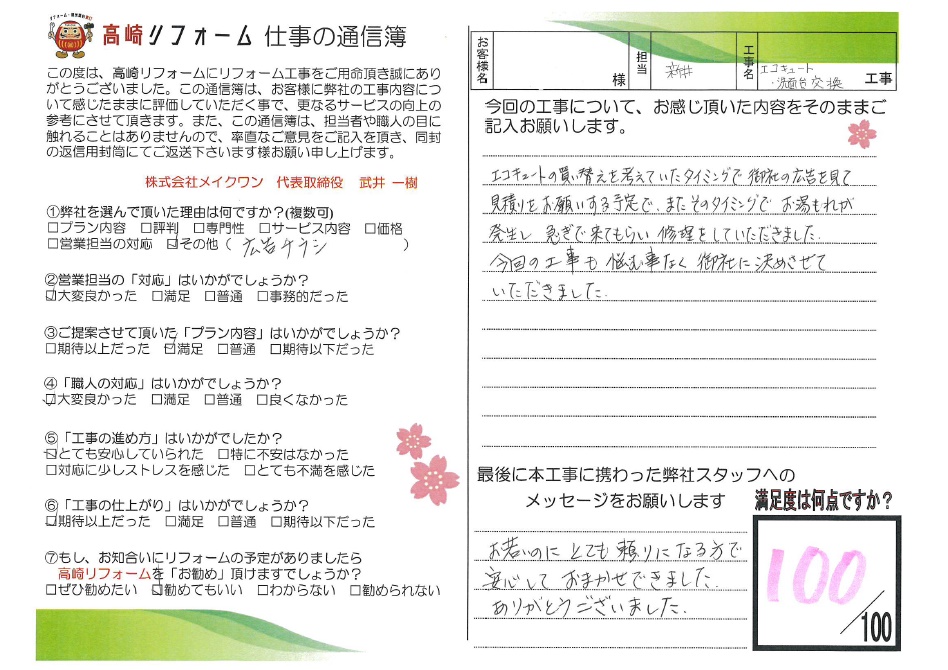 リフォーム・増改築お任せ
高崎リフォーム 仕事の通信簿
この度は、高崎リフォームにリフォーム工事をご用命頂き誠にあり
がとうございました。この通信簿は、お客様に弊社の工事内容につ
いて感じたままに評価していただく事で、更なるサービスの向上の
参考にさせて頂きます。また、この通信簿は、担当者や職人の目に
触れることはありませんので、率直なご意見をご記入を頂き、同封
の返信用封筒にてご返送下さいます様お願い申し上げます。
株式会社メイクワン 代表取締役 武井 一樹
①弊社を選んで頂いた理由は何ですか?(複数可)
□プラン内容 □評判 □専門性 □サービス内容 □価格
□営業担当の対応 ☑その他( 広告チラシ )
②営業担当の「対応」はいかがでしょうか?
☑大変良かった □満足 □普通 □事務的だった
③ご提案させて頂いた「プラン内容」はいかがでしょうか?
□期待以上だった ☑満足 □普通 □期待以下だった
④「職人の対応」はいかがでしょうか?
☑大変良かった □満足 □普通 □良くなかった
⑤「工事の進め方」はいかがでしたか?
☑とても安心していられた □特に不安はなかった
□対応に少しストレスを感じた □とても不満を感じた
⑥「工事の仕上がり」はいかがでしょうか?
☑期待以上だった □満足 □普通 □期待以下だった
⑦もし、お知合いにリフォームの予定がありましたら
高崎リフォームを「お勧め」頂けますでしょうか?
□ぜひ勧めたい ☑勧めてもいい □わからない □勧められない
お客様名 様 担当 新井 工事名 エコキュート・洗面台交換 工事
今回の工事について、お感じ頂いた内容をそのままご
記入お願いします。
エコキュートの買い替えを考えていたタイミングで御社の広告を見て
見積りをお願いする予定で、またそのタイミングでお湯もれが
発生し 急ぎで来てもらい修理をしていただきました。
今回の工事も悩む事なく御社に決めさせて
いただきました。
最後に本工事に携わった弊社スタッフへの
メッセージをお願いします
お若いのにとても頼りになる方で
安心しておまかせできました。
ありがとうございました。
満足度は何点ですか?
100
/100